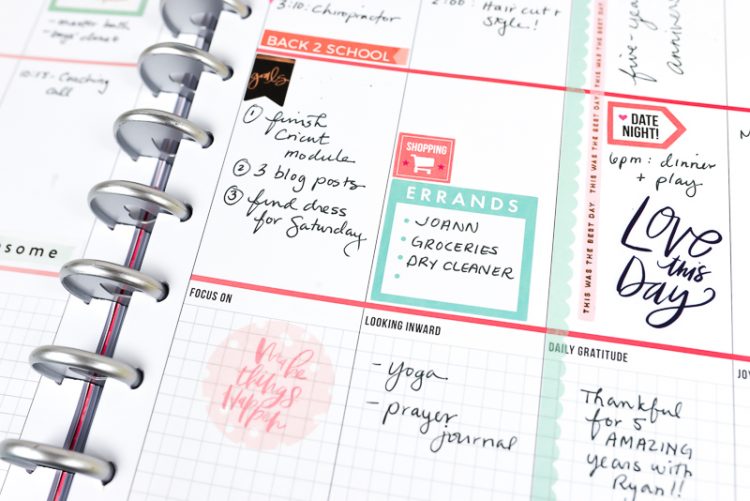 master bath
10:15 - Coaching
call
esome
3:10: Chiropractor
BACK 2 SCHOOL
goals
① finish
Cricut
module
② 3 blog posts
③ find dress
for Saturday
FOCUS ON
Make
things
Happen
2:00: Haircut +
style!
SHOPPING
ERRANDS
• JOANN
• GROCERIES
• DRY CLEANER
LOOKING INWARD
- yoga
- prayer
journal
THIS WAS THE BEST DAY THIS WAS THE BEST DAY THIS WAS THE BEST DAY
five-year
anniver
DATE
NIGHT!
6pm: dinner
+ play
Love
this
Day
DAILY GRATITUDE
Thankful
for 5
AMAZING
years with
Ryan!!
JOY